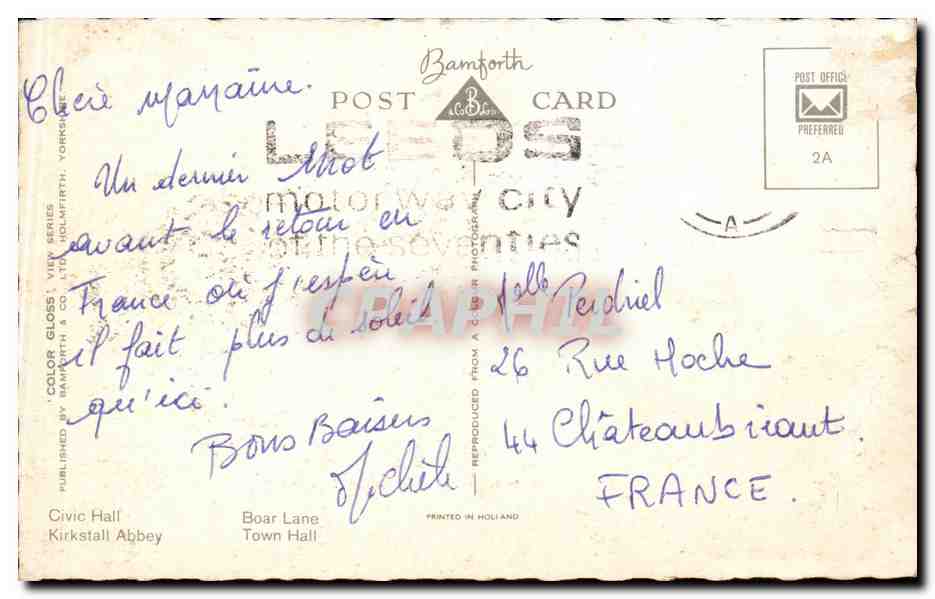 Bamforth
POST CARD
B
& Co Ltd
POST OFFICE
PREFERRED
2A
LEEDS
motorway city
of the seventies
A
Chère Marraine.
Un dernier Mot
avant le retour en
France où j'espère
il fait plus du soleil
qu'ici.
Bons Baisers
Michèle
Melle Perdriel
26 Rue Hoche
44 Châteaubriant.
FRANCE.
'COLOR GLOSS' VIEW SERIES
PUBLISHED BY BAMFORTH & CO LTD HOLMFIRTH. YORKSHIRE
REPRODUCED FROM A COLOUR PHOTOGRAPH
CPAPHIL
Civic Hall Boar Lane
Kirkstall Abbey Town Hall
PRINTED IN HOLLAND